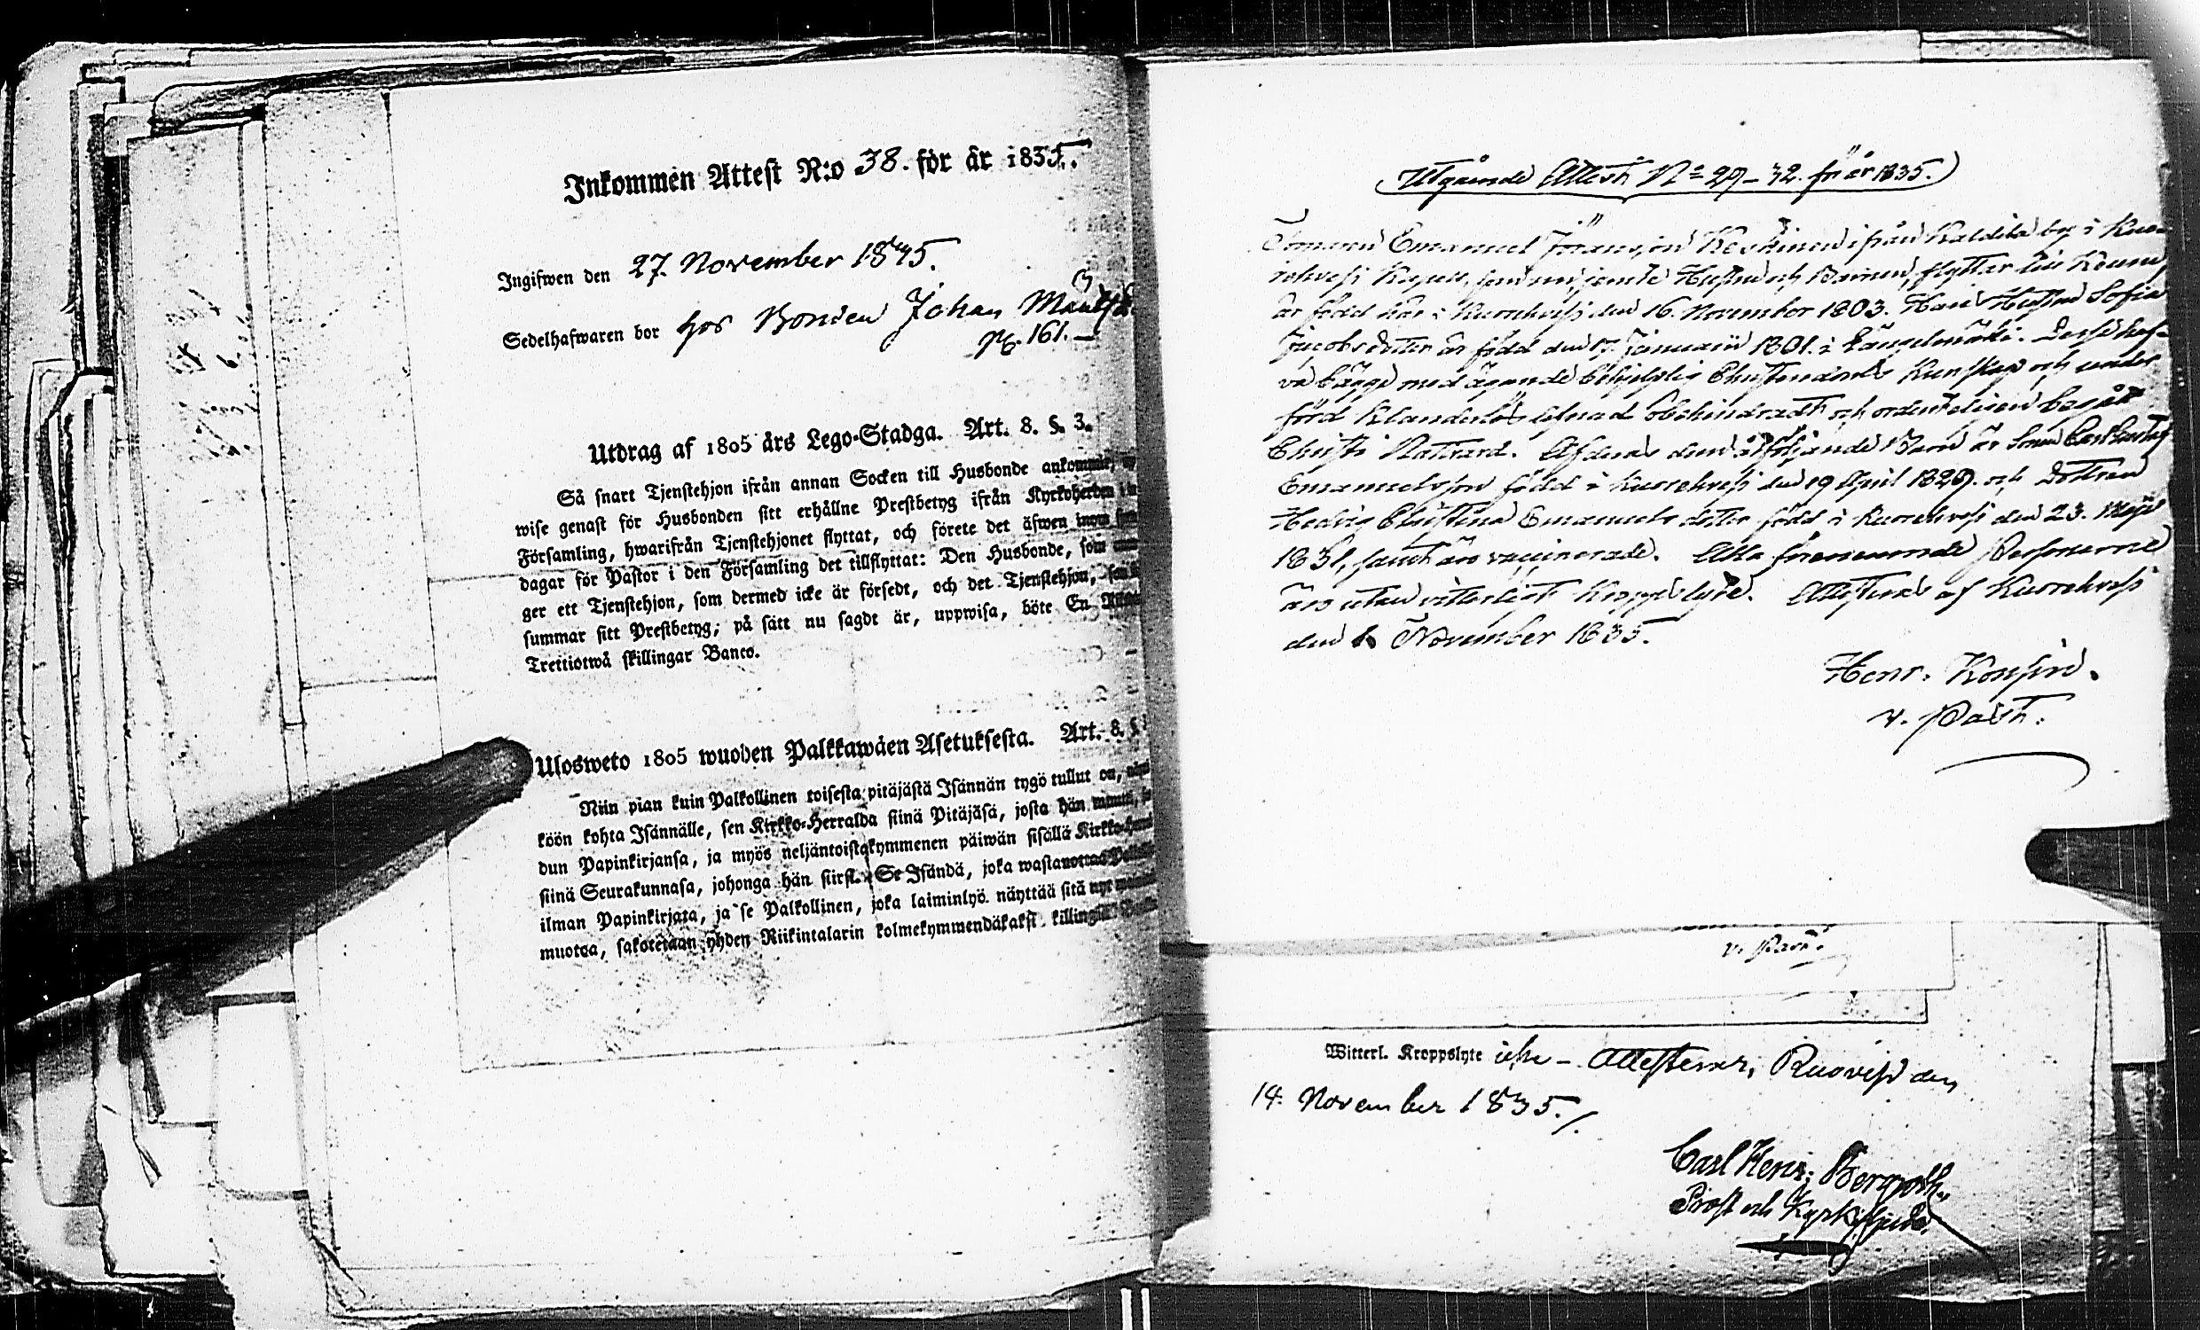 Inkommen Attest N:o 38. för år 1835.
Ingifwen den 27. November 1835.
Sedelhafwaren bor hos Bonden Johan
pag. 161.
Utdrag af 1805 års Lego-Stadga. Art. 8. §. 3.
Så snart Tjenstehjon ifrån annan Socken till Husbonde ankommit,
wise genast för Husbonden sitt erhållne Prestbetyg ifrån Kyrkoherden i
Församling, hwarifrån Tjenstehjonet flyttat, och förete det äfwen inom
dagar för Pastor i den Församling det tillflyttat: Den Husbonde, som
ger ett Tjenstehjon, som dermed icke är försedt, och det Tjenstehjon,
summar sitt Prestbetyg, på sätt nu sagdt är, uppwisa, böte En
Trettiotwå skillingar Banco.
Ulosweto 1805 wuoden Palkkawäen Asetuksesta. Art. 8. §
Niin pian kuin Palkollinen toisesta pitäjästä Isännän tygö tullut on,
köön kohta Isännälle, sen Kirkko-Herralda siinä Pitäjäsä, josta hän
dun Papinkirjansa, ja myös neljäntoistakymmenen päiwän sisällä
siinä Seurakunnasa, johonga hän siirst. Se Isändä, joka wastanottaa
ilman Papinkirjata, ja se Palkollinen, joka laiminlyö näyttää sitä nyt
muotoa, sakotetaan yhden Riikintalarin kolmekymmendäkaksi killingiä
Utgående Attest N:o 29-32. för år 1835.
Emanuel Johansson Keskinen ifrån by i
Kapell, som nu jemte Hustru och Barnen, flyttar till
är född här i Kuorehvesi den 16. November 1803. Hans Hustru Sofia
Jacobsdotter är född den 17. Januarii 1801. i Längelmäki. Desse haf-
va bägge med ägande behjelplig Christendoms Kunskap och under
förd klanderlös lefnad obehindradt och ordenteligen begått
Christi Nattvard. Af deras Barn är Sonen Carl Gustaf
Emanuelsson född i Kuorehvesi den 19 April 1829. och Dottren
Hedvig Christina Emanuelsdotter född i Kuorehvesi den 23. Maji
1831, samt äro vaccinerade. Alla förenämnde Personerne
äro utan vitterligit Kroppslyte. Attesteras af Kuorehvesi
den November 1835.
Henr. Konsin.
v. Past.
v. Past.
Witterl. Kroppslyte icke - Attesterar, Ruovesi den
14. November 1835.
Carl Henr. Bergroth.
Prost och Kyrkoherde.